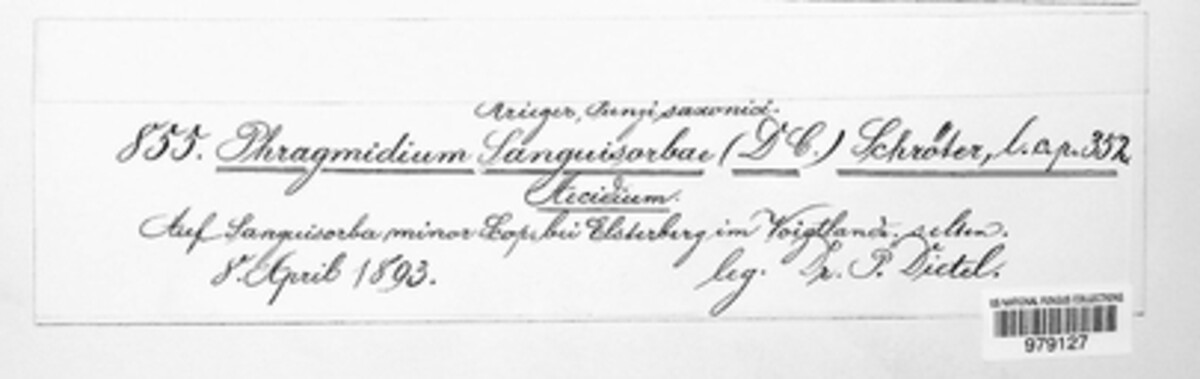 Krieger, Fungi saxonici.
855. Phragmidium Sanguisorbae (DC.) Schröter, l. c. p. 352.
Aecidium.
Auf Sanguisorba minor Scop. bei Elsterberg im Voigtlande, selten.
8. April 1893.
leg. Dr. P. Dietel.
US NATIONAL FUNGUS COLLECTIONS
979127